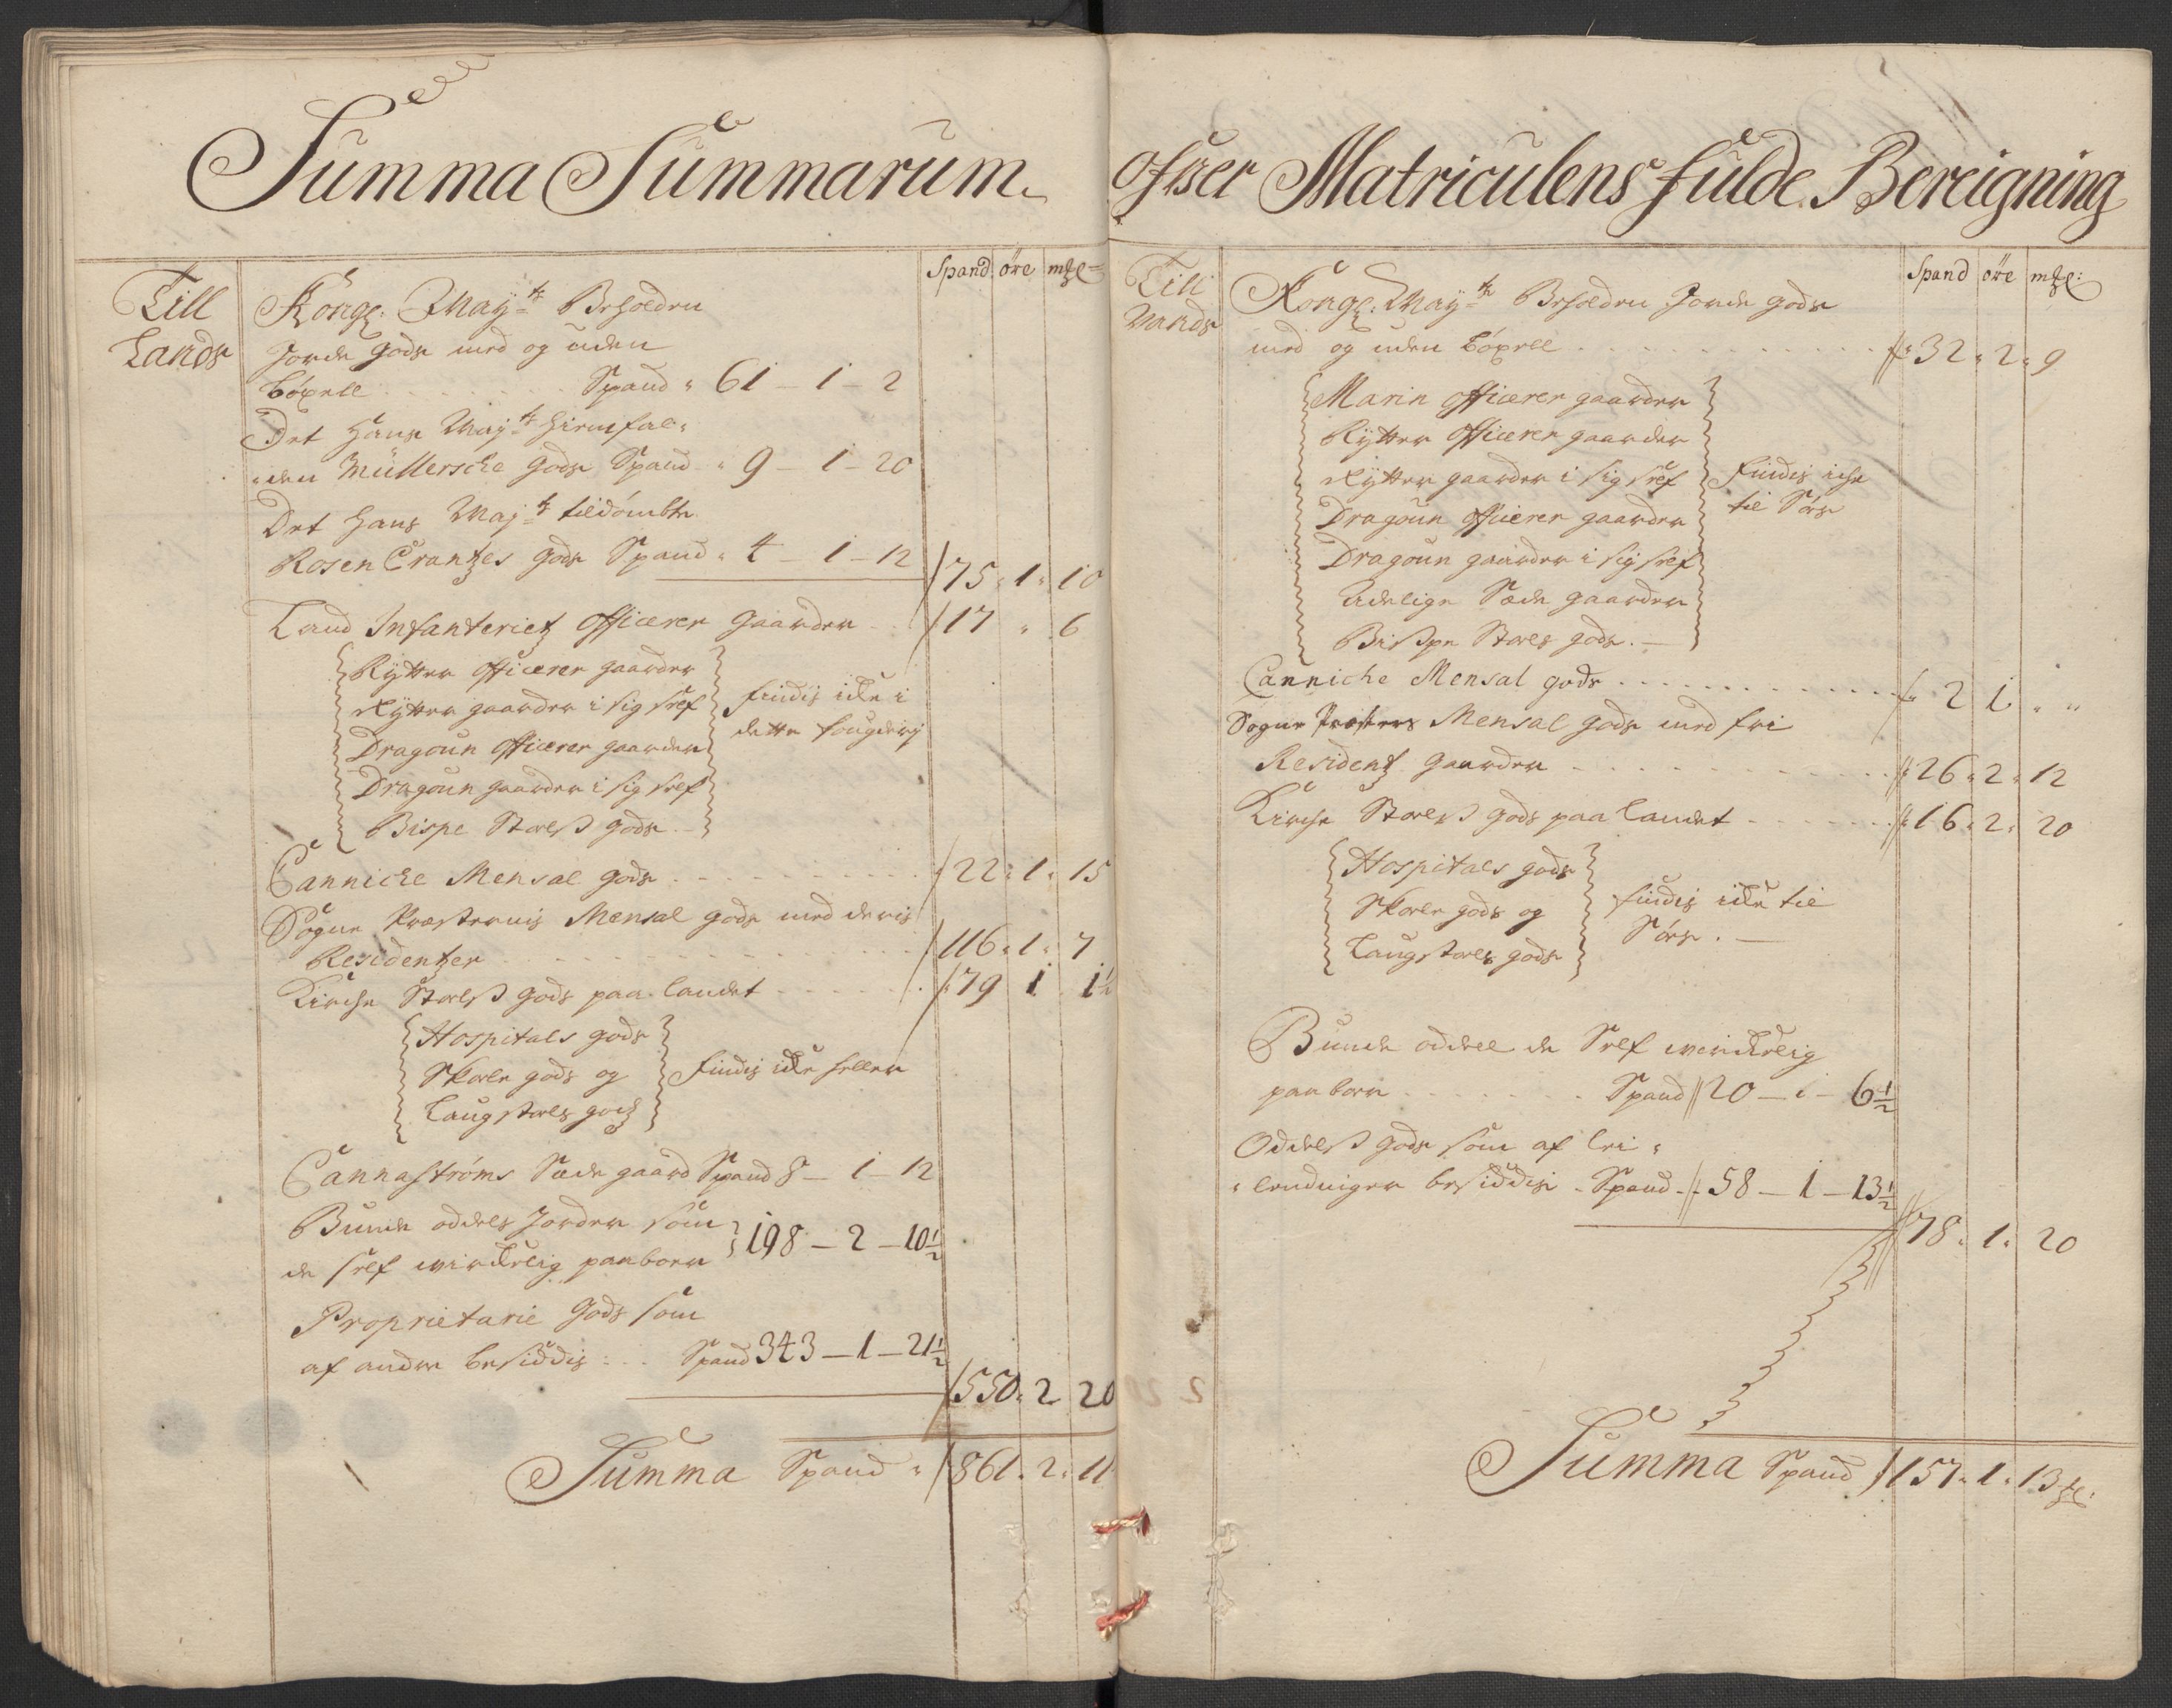 Summa Summarum
Spand øre mȝl
Till
Lands
Kongl: Mayts Beholdne
Jorde Gods med og uden
böxell . . . . Spand 61 - 1 - 2
Det Hans Mayts hiemfal-
den Müllersche Gods Spand 9 - 1 - 20
Det Hans Mayts tildömbte
Rosen Crantzes Gods Spand 4 - 1 - 12
75 1 10
Land Infanteriets Officerer Gaarder 17 " 6
Rytter Officerer gaarder
Rytter gaarder i sig self
Dragoun Officerer gaarder
Dragoun gaarder i sig self
Bispe Stoelß gods
findis icke i
dette fougderj
Cannicke Mensal gods . . . 22 1 15
Sogne Præsternis Mensal gods med deris
Residentzer . . . 116 1 7
Kirche Stoelß gods paa Landet . . . 79 1 1½
Hospitals gods
Skoele gods og
Laugstoels gods
findis icke heller
Cannaströms Sæde gaard Spand 8 - 1 - 12
Bunde oddels Jorder som
de self wirckelig paaboer 198 - 2 - 10½
Proprietarie Gods som
af andre besiddis . . Spand 343 - 1 - 21½
550 2 20
Summa Spand 861 2 11
ofwer Matriculens fulde Bereigning
Spand øre mȝl:
Till
Wands
Kongl: Mayts Beholdne Jorde gods
med og uden böxell . . . 32 2 9
Marin Officerer gaarder
Rytter Officerer gaarder
Rytter gaarder i sig self
Dragoun Officerer gaarder
Dragoun gaarder i sig self
Adelige Sæde gaarder
Bißpe Stoels gods
findis iche
til Søes
Canniche Mensal gods . . . 2 1 "
Sogne Præsters Mensal gods med fri
Residentz Gaarder . . . 26 2 12
Kirche Stoelß gods paa Landet . . . 16 2 20
Hospitals gods
Skoele gods og
Laugstoels gods
findis icke til
Søes
Bunde oddell de Self wirckelig
paaboer . . . Spand 20 - 1 - 6½
Oddelß gods som af lei-
lendinger besiddis Spand 58 - 1 - 13½
78 1 20
Summa Spand 157 1 13 ȝl: